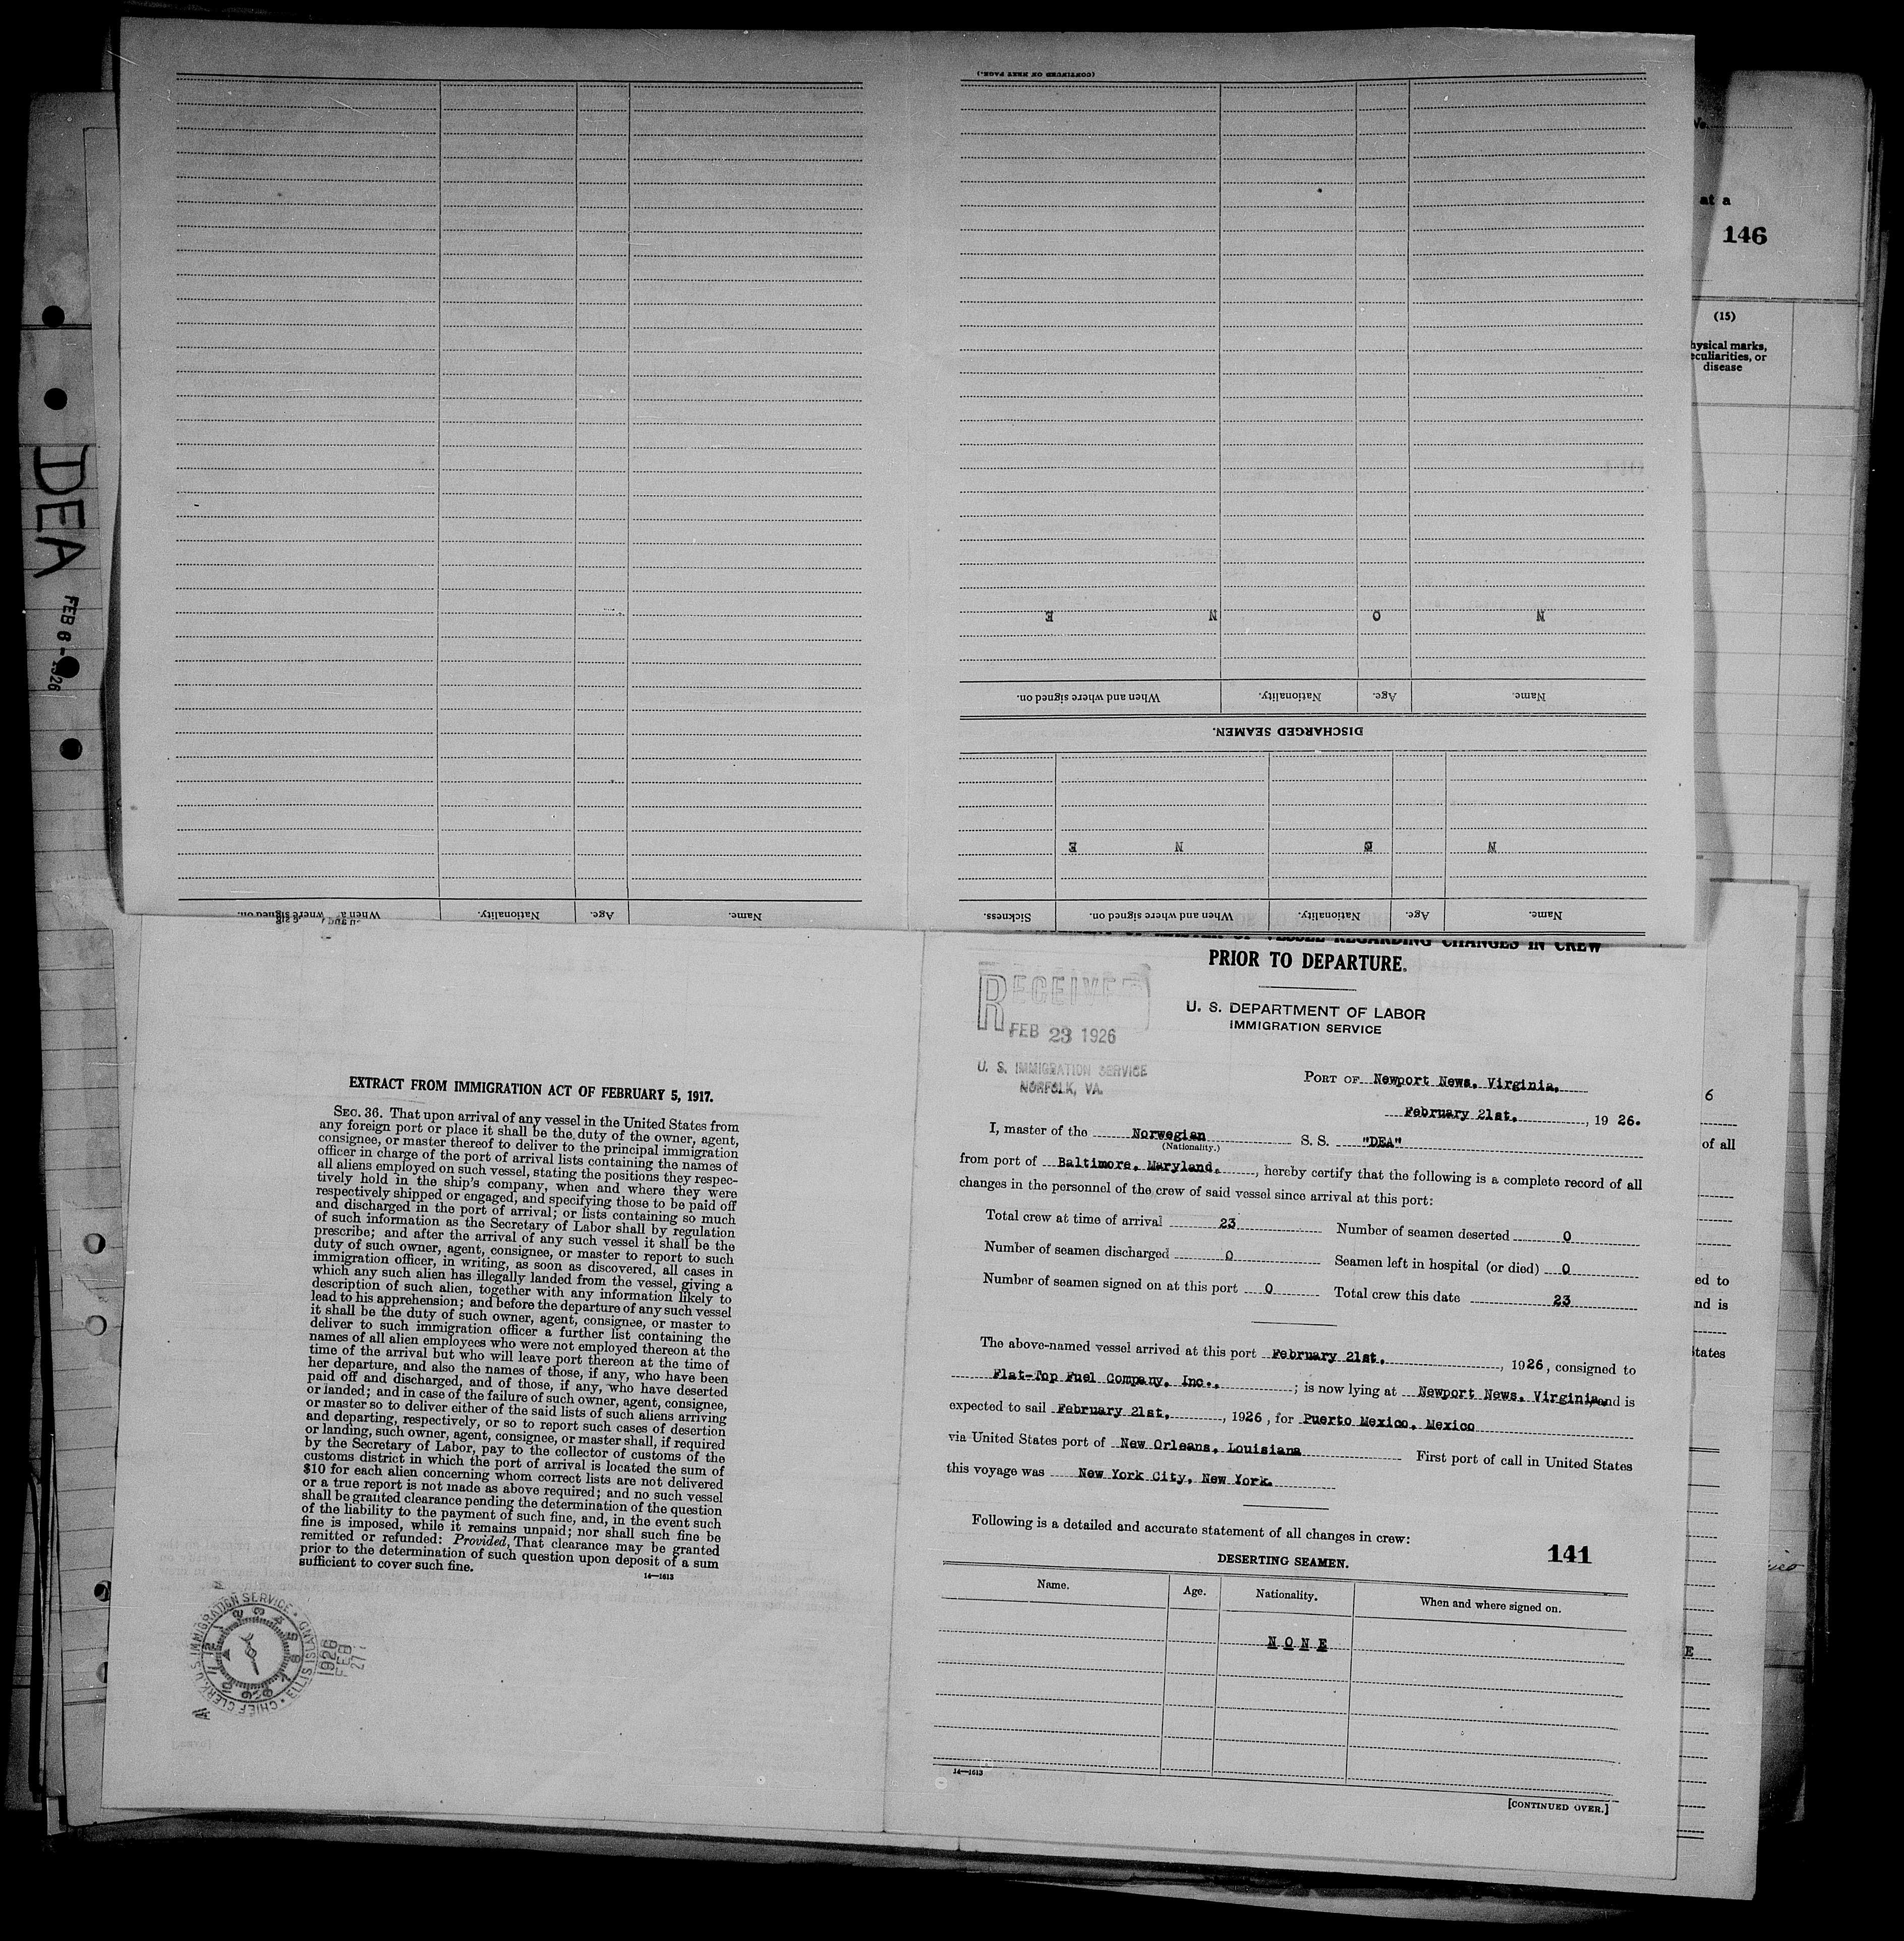 (CONTINUED ON NEXT PAGE.)
N O N E
Name. Age. Nationality. When and where signed on.
DISCHARGED SEAMEN.
N O N E
Name. Age. Nationality. When and where signed on. Sickness.
Name. Age. Nationality. When and where signed on.
No.
at a
146
(15)
hysical marks,
eculiarities, or
disease
DEA
FEB 6 - 1926
REGARDING CHANGES IN CREW
PRIOR TO DEPARTURE.
U. S. DEPARTMENT OF LABOR
IMMIGRATION SERVICE
RECEIVED
FEB 23 1926
U. S. IMMIGRATION SERVICE
NORFOLK, VA.
PORT OF Newport News, Virginia.
February 21st, , 19 26.
I, master of the Norwegian S. S. "DEA"
(Nationality.)
from port of Baltimore, Maryland. , hereby certify that the following is a complete record of all
changes in the personnel of the crew of said vessel since arrival at this port:
Total crew at time of arrival 23 Number of seamen deserted 0
Number of seamen discharged 0 Seamen left in hospital (or died) 0
Number of seamen signed on at this port 0 Total crew this date 23
The above-named vessel arrived at this port February 21st, , 1926, consigned to
Flat-Top Fuel Company, Inc., ; is now lying at Newport News, Virginia and is
expected to sail February 21st, , 1926, for Puerto Mexico, Mexico
via United States port of New Orleans, Louisiana First port of call in United States
this voyage was New York City, New York.
Following is a detailed and accurate statement of all changes in crew:
141
DESERTING SEAMEN.
Name. Age. Nationality. When and where signed on.
N O N E
14—1613
[CONTINUED OVER.]
EXTRACT FROM IMMIGRATION ACT OF FEBRUARY 5, 1917.
SEC. 36. That upon arrival of any vessel in the United States from
any foreign port or place it shall be the duty of the owner, agent,
consignee, or master thereof to deliver to the principal immigration
officer in charge of the port of arrival lists containing the names of
all aliens employed on such vessel, stating the positions they respec-
tively hold in the ship's company, when and where they were
respectively shipped or engaged, and specifying those to be paid off
and discharged in the port of arrival; or lists containing so much
of such information as the Secretary of Labor shall by regulation
prescribe; and after the arrival of any such vessel it shall be the
duty of such owner, agent, consignee, or master to report to such
immigration officer, in writing, as soon as discovered, all cases in
which any such alien has illegally landed from the vessel, giving a
description of such alien, together with any information likely to
lead to his apprehension; and before the departure of any such vessel
it shall be the duty of such owner, agent, consignee, or master to
deliver to such immigration officer a further list containing the
names of all alien employees who were not employed thereon at the
time of the arrival but who will leave port thereon at the time of
her departure, and also the names of those, if any, who have been
paid off and discharged, and of those, if any, who have deserted
or landed; and in case of the failure of such owner, agent, consignee,
or master so to deliver either of the said lists of such aliens arriving
and departing, respectively, or so to report such cases of desertion
or landing, such owner, agent, consignee, or master shall, if required
by the Secretary of Labor, pay to the collector of customs of the
customs district in which the port of arrival is located the sum of
$10 for each alien concerning whom correct lists are not delivered
or a true report is not made as above required; and no such vessel
shall be granted clearance pending the determination of the question
of the liability to the payment of such fine, and, in the event such
fine is imposed, while it remains unpaid; nor shall such fine be
remitted or refunded: Provided, That clearance may be granted
prior to the determination of such question upon deposit of a sum
sufficient to cover such fine.
14—1613
U.S. IMMIGRATION SERVICE • ELLIS ISLAND • CHIEF CLERK
1926
FEB
27
6
of all
ed to
nd is
tates
E